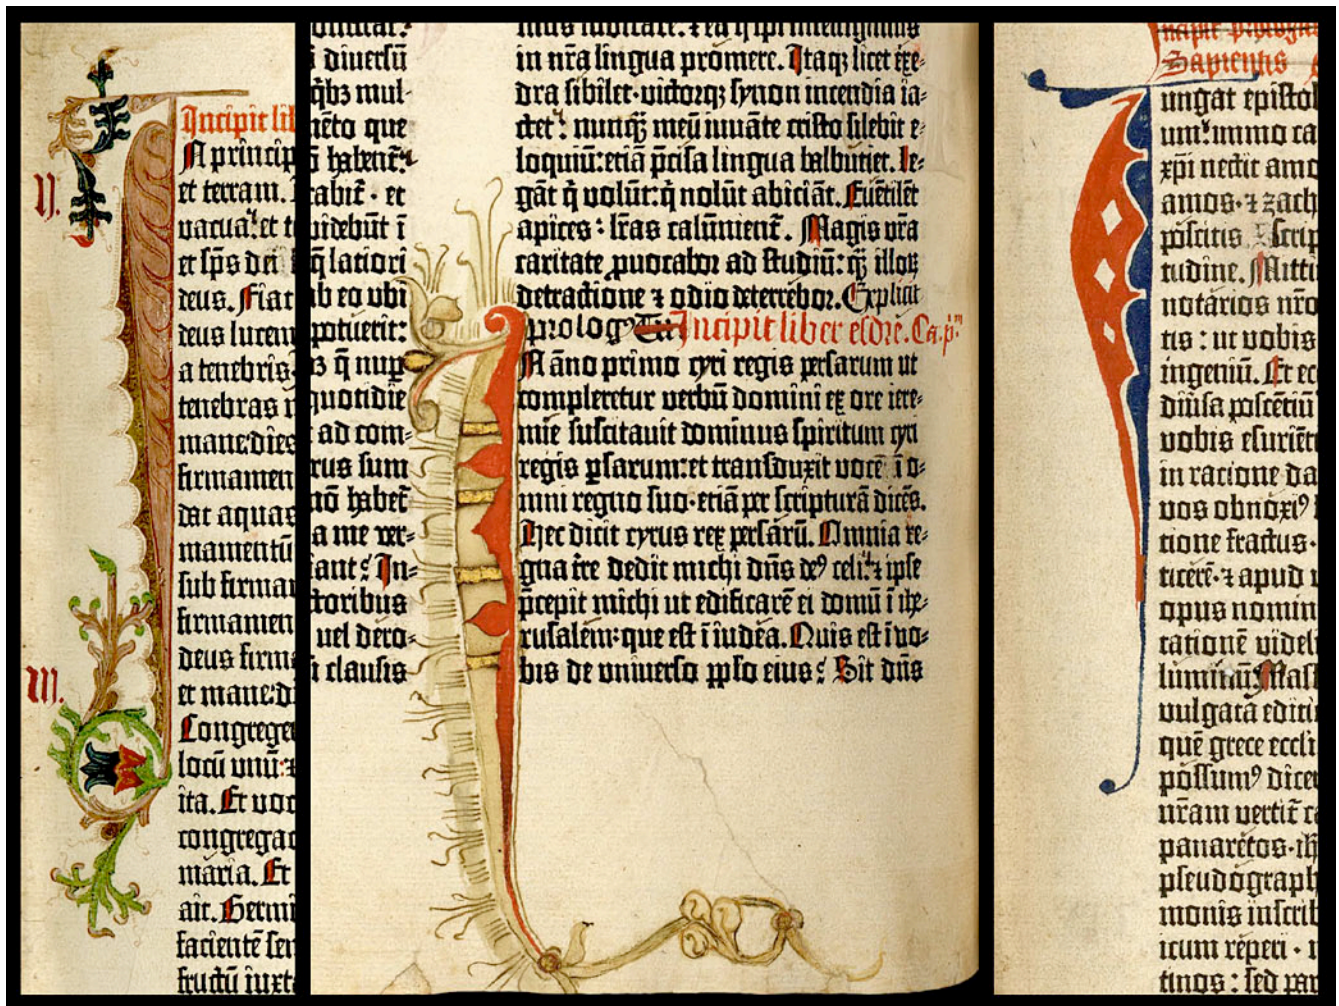 II.
III.
Incipit lib
N princip
et terram.
vacua: et t
et sp̄s dei
deus. Fiat
deus lucem
a tenebris.
tenebras
mane dies
firmamen
dat aquas
mamentū
sub firma
firmamen
deus firm
et mane: di
Congrege
locū unū: ⁊
ita. Et voc
congregac
maria. Et
ait. Germi
facientē sem
fructū iuxt
diversū
q̄bꝫ mul-
que
habent:
et
videbūt ī
q̄ latiori
ab eo ubi
potuerit:
q̄ nup
quotidie
ad com-
rus sum
nō habet
a me ver-
In-
toribus
vel dero-
clausis
in nr̄a lingua promere. Itaqꝫ licet exe-
dra sibilet· victorqꝫ synon incendia ia-
ctet: nunq̄ meū iuvāte cristo silebit e-
loquiū: etiā p̄cisa lingua balbutiet. Le-
gāt q̄ volūt: q̄ nolūt abiciāt. Eventilēt
apices: lr̄as calūnient̄. Magis vr̄a
caritate ꝓvocabor ad studiū: q̄ illoꝝ
detractione ⁊ odio deterrebor. Explicit
prologꝰ Incipit liber esdre. Ca. pᵐ
N āno primo cyri regis persarum ut
compleretur verbū domini ex ore iere-
mie suscitavit dominus spiritum cyri
regis ꝑsarum: et transduxit vocē ī o-
mni regno suo· etiā per scripturā dicēs.
Hec dicit cyrus rex persarū. Omnia re-
gna tr̄e dedit michi dn̄s deꝰ celi: ⁊ ipse
p̄cepit michi ut edificarē ei domū ī ihe-
rusalem: que est ī iudea. Quis est ī vo-
bis de universo pplo eius? Sit dn̄s
Sapientis
ungat epistol
um: immo ca
xp̄i nectit amo
amos· ⁊ zach
poscitis
tudine. Mitti
notarios nr̄o
tis: ut vobis
ingeniū. Et ec
diūsa poscētiū
vobis esuriēt
in ratione da
vos obnoxiꝰ
tione fractus·
ticerē· ⁊ apud
opus nomin
tationē videl
luminū Masl
vulgata editi
quē grece eccli
possumꝰ dice
nr̄am vertit̄
panaretos· ih
pseudograph
monis inscrib
icum reperi ·
tinos: sed par